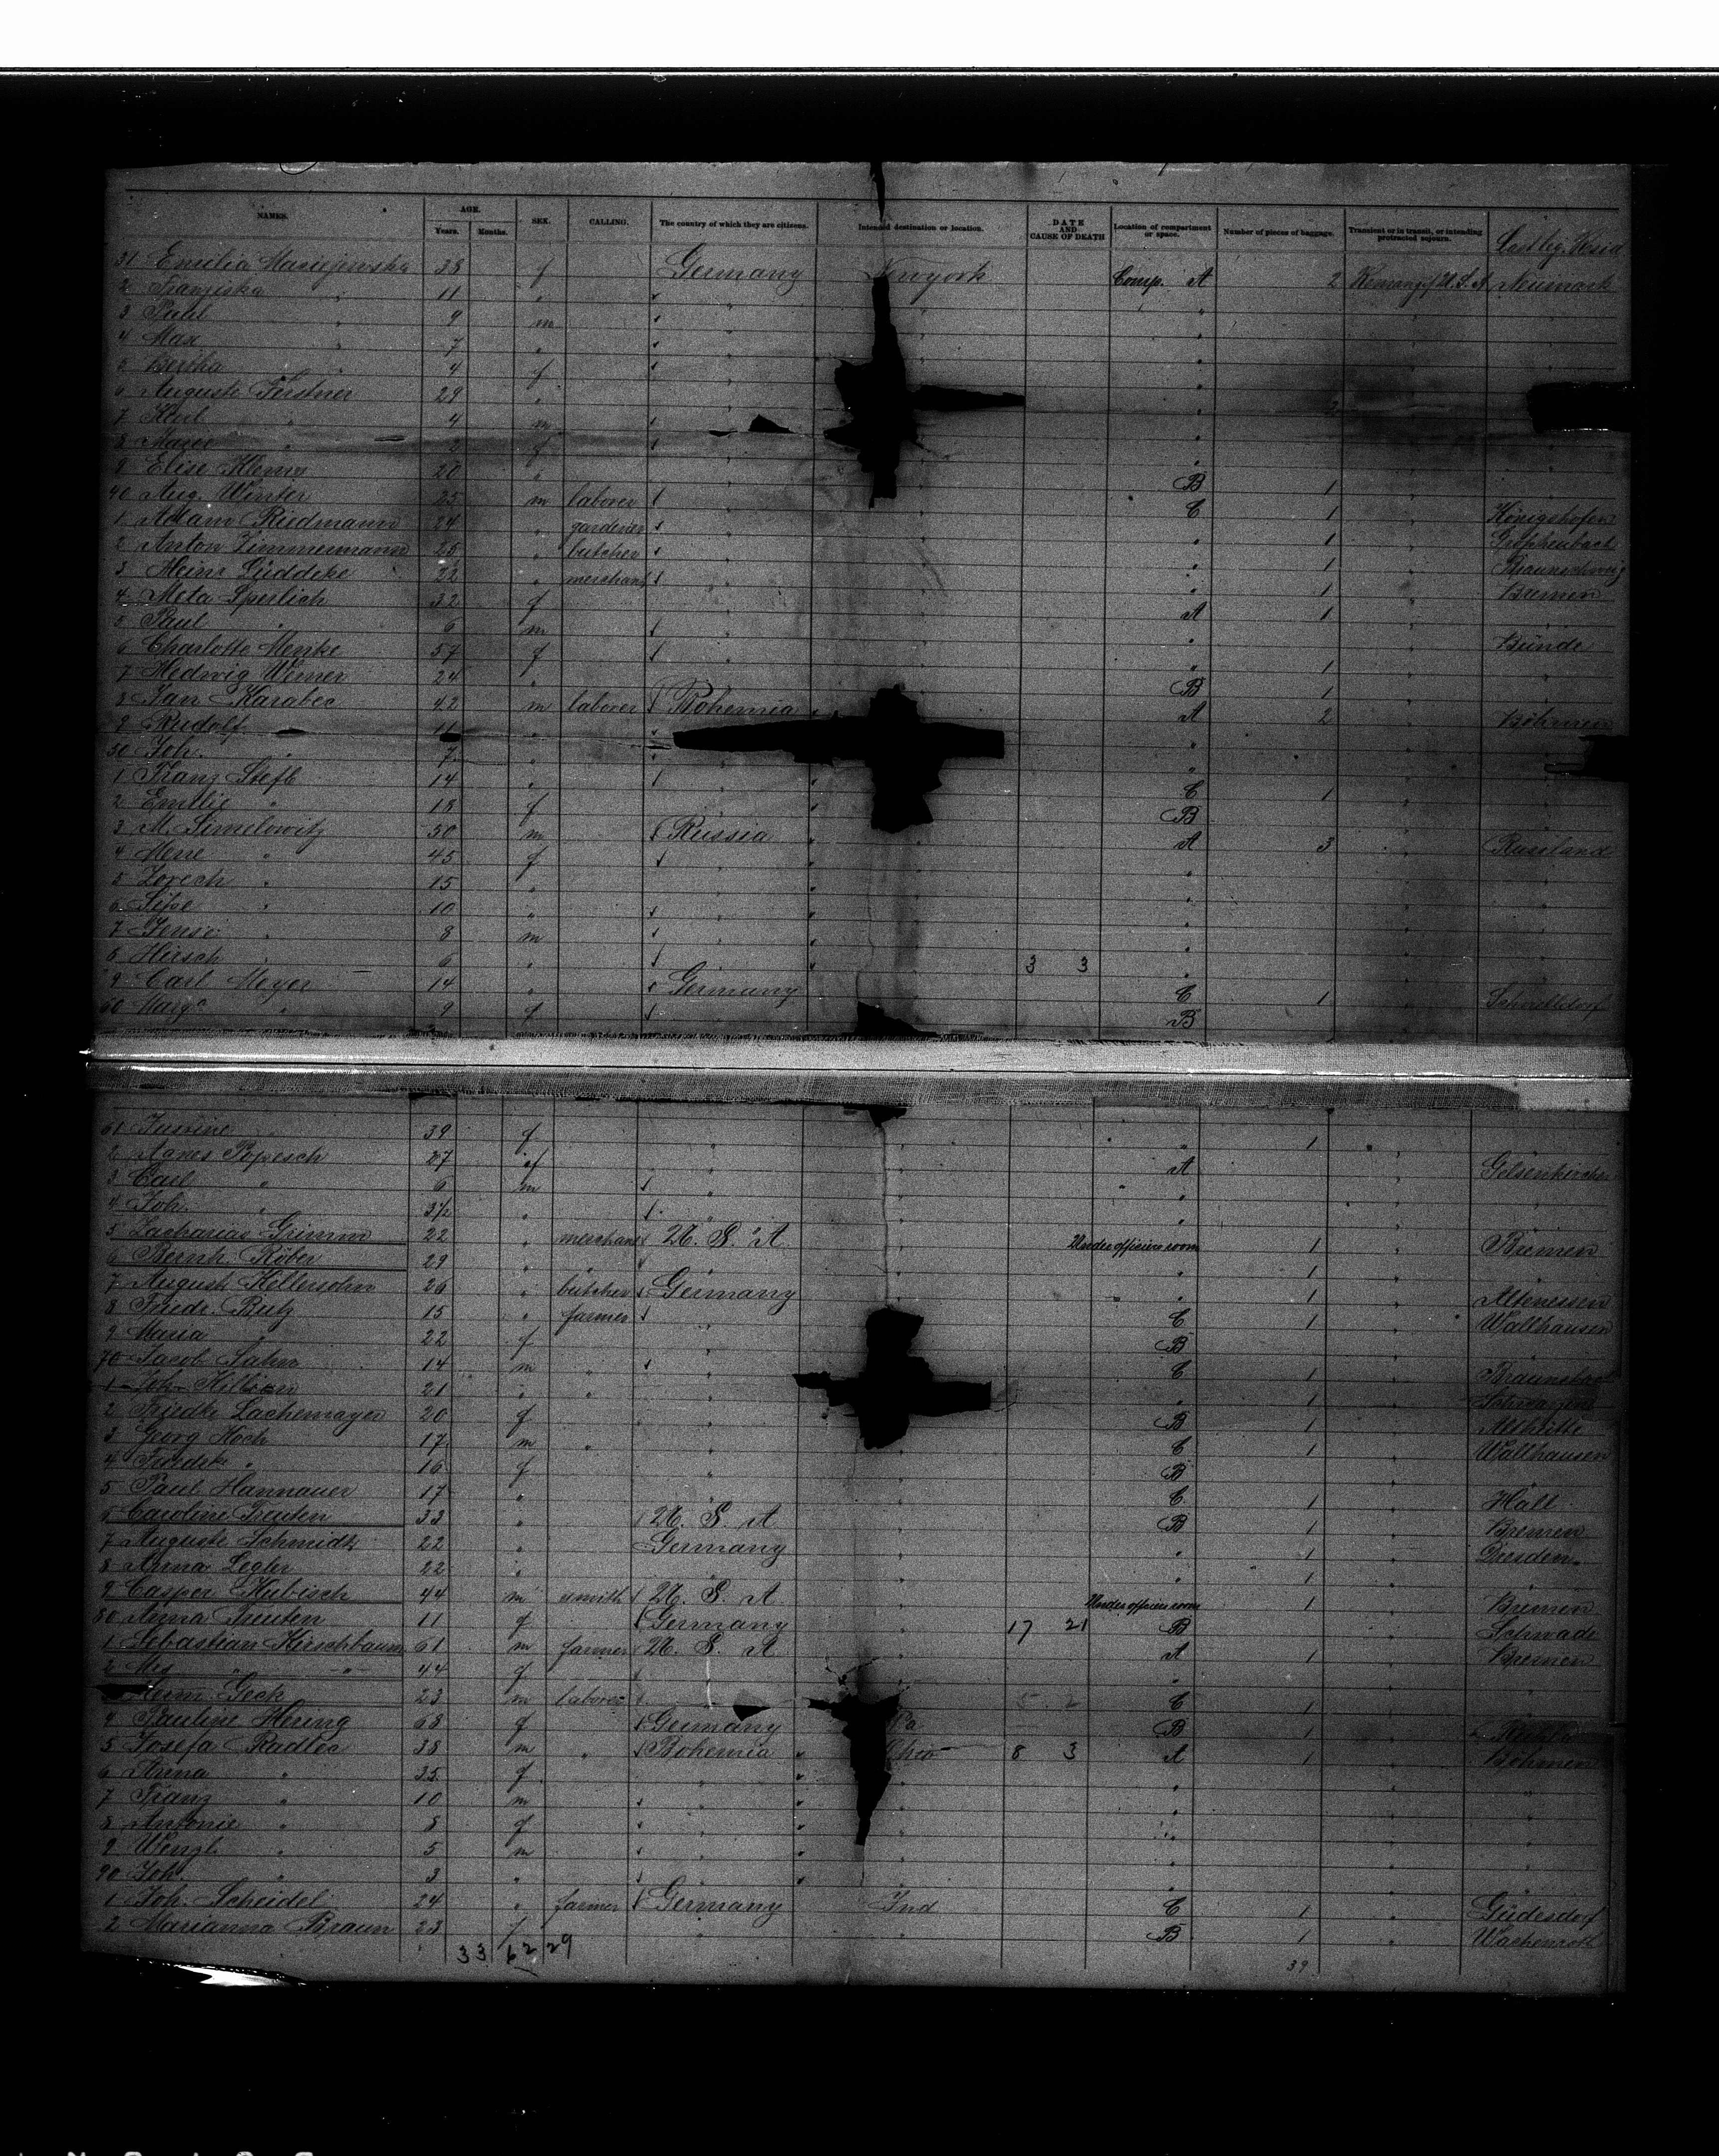 NAMES. AGE. Years. Months. SEX. CALLING. The country of which they are citizens. Intended destination or location. DATE AND CAUSE OF DEATH Location of compartment or space. Number of pieces of baggage. Transient or in transit, or intending protracted sojourn.
31 Emilia Maciejewska 38 f Germany Newyork Comp. A 2 U.S.A. Neumark
2 Franziska " 11 "
3 Paul " 9 m
4 Max " 7 "
5 Bertha " 4 f
6 Auguste Ferstner 29 " 2
7 Karl " 4 m
8 Marie " 2 f
9 Elise Klems 20 " B 1
40 Aug. Winter 25 m laborer C 1 Königshofen
1 Adam Riedmann 24 " gardener " 1
2 Anton Zimmermann 25 " butcher " 1 Braunschweig
3 Heinr Lüddeke 22 " merchant " 1 Bremen
4 Meta Sperlich 32 f A 1
5 Paul " 6 m Bünde
6 Charlotte Menke 57 f " 1
7 Hedwig Werner 24 " B 1
8 Jan Karabec 42 m laborer Bohemia A 2 Böhmen
9 Rudolf 11 "
50 Joh. 7 "
1 Franz Stefl 14 " C 1
2 Emilie " 18 f B
3 M. Simelowitz 50 m Russia A 3 Russland
4 Mene " 45 f
5 Zorech " 15 "
6 Sipe " 10 "
7 " 8 m
8 Hirsch " 6 " 3 3
9 Carl Meyer 14 " Germany C 1
60 Marg. " 9 f B
61 39 f " 1
2 Agnes Popesch 27 f A Gelsenkirchen
3 Carl " 6 m
4 Joh. " 3½ "
5 Zacharias Grimm 22 " merchant U. S. A Under officiers room 1 Bremen
6 Bernh. Röber 29 " " 1
7 August Kellersohn 26 " butcher Germany " 1 Altenessen
8 Friedr. Butz 15 " farmer C 1 Wallhausen
9 Maria " 22 f B
70 Jacob Sahm 14 m " C 1
1 Joh. Killian 21 " " " 1
2 Friedke Lachemayer 20 f B 1
3 Georg Hoch 17 m " C 1 Wallhausen
4 Friedke " 16 f B
5 Paul Hannauer 17 " C 1 Hall
6 Caroline Treuten 33 " U. S. A B 1 Bremen
7 Auguste Schmidt 22 " Germany " 1 Dresden
8 Anna Legler 22 " " 1
9 Casper Kubisch 44 m smith U. S. A Under officiers room 1 Bremen
80 Anna Treuten 11 f Germany 17 21 B Schwade
1 Sebastian Kirschbaum 61 m farmer U. S. A A 1 Bremen
2 Mrs " " 44 f
Geck 23 m laborer C 1
4 Pauline Hering 68 f Germany Pa B 1
5 Josefa Radlec 38 m " Bohemia Ohio 8 3 A 1 Böhmen
6 Anna " 35 f
7 Franz " 10 m
8 Antonie " 8 f
9 Wenzl " 5 m
90 Joh. " 3 "
1 Joh. Scheidel 24 " farmer Germany Ind C 1 Güdesdorf
2 Marianna Braun 23 f B 1 Wachenroth
33 62 29 39